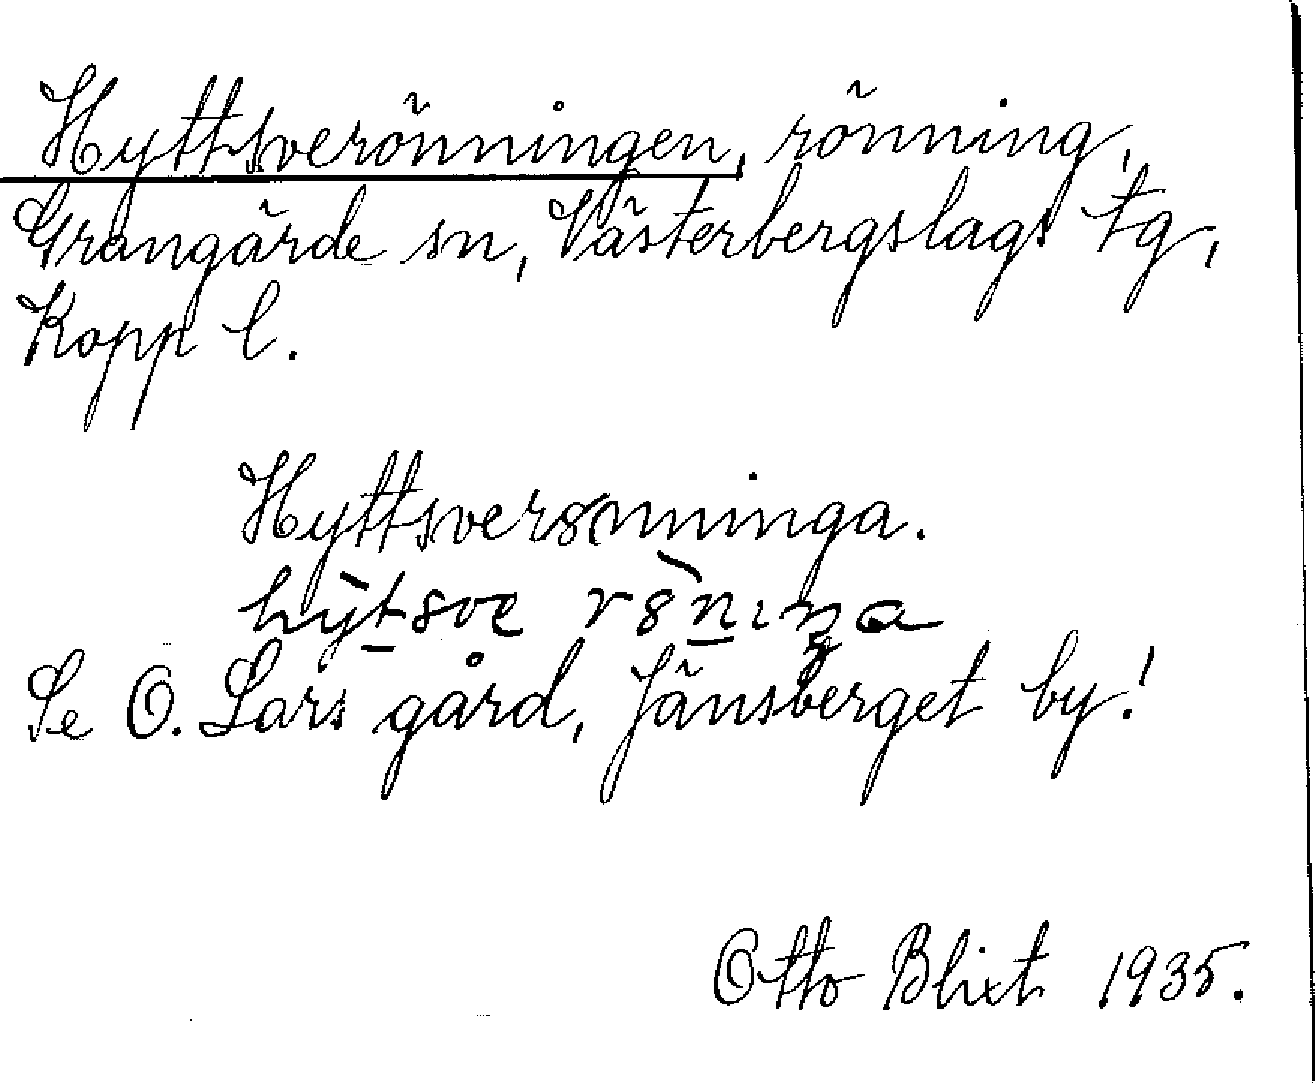 Hyttsverönningen, rönning,
Grangärde sn, Västerbergslags tg,
Kopp l.
Hyttsvers(nninga.
Se O. Lars gård, Jänsberget by!
Otto Blixt 1935.